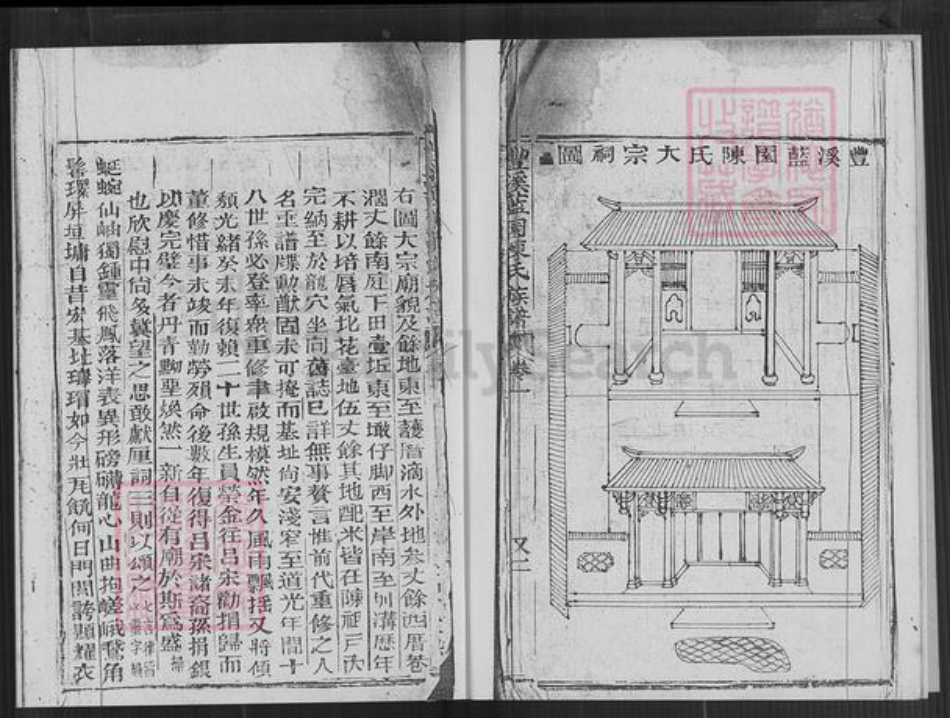 豐溪藍園陳氏大宗祠圖
豐溪藍園陳氏族譜 卷一
又二
右圖大宗廟貌及餘地東至護厝滴水外地叁丈餘西厝巷
濶丈餘南庭下田壹坵東至墘仔脚西至岸南至圳溝歷年
不耕以培唇氣北花臺地伍丈餘其地配米皆在陳祖戶內
完納至於龍穴坐向舊誌已詳無事贅言惟前代重修之人
名垂譜牒勳猷固未可掩而基址尚安淺窄至道光年間十
八世孫必登率衆重修聿啟規模然年久風雨飄搖又將傾
頹光緒癸未年復賴二十世孫生員榮金往呂宋勸捐歸而
董修惜事未竣而勤勞殞命後數年復得呂宋諸裔孫捐銀
以慶完璧今者丹青黝堊煥然一新自從有廟於斯爲盛
也欣慰中尙多冀望之思敢獻厘詞三則以頌之
蜒蜿仙岫獨鍾靈飛鳳落洋表異形磅礴龍心山曲拘嵯峨鰲角
髻環屏垣墉自昔宏基址 如今壯 何日門閭誇顯耀衣
FamilySearch